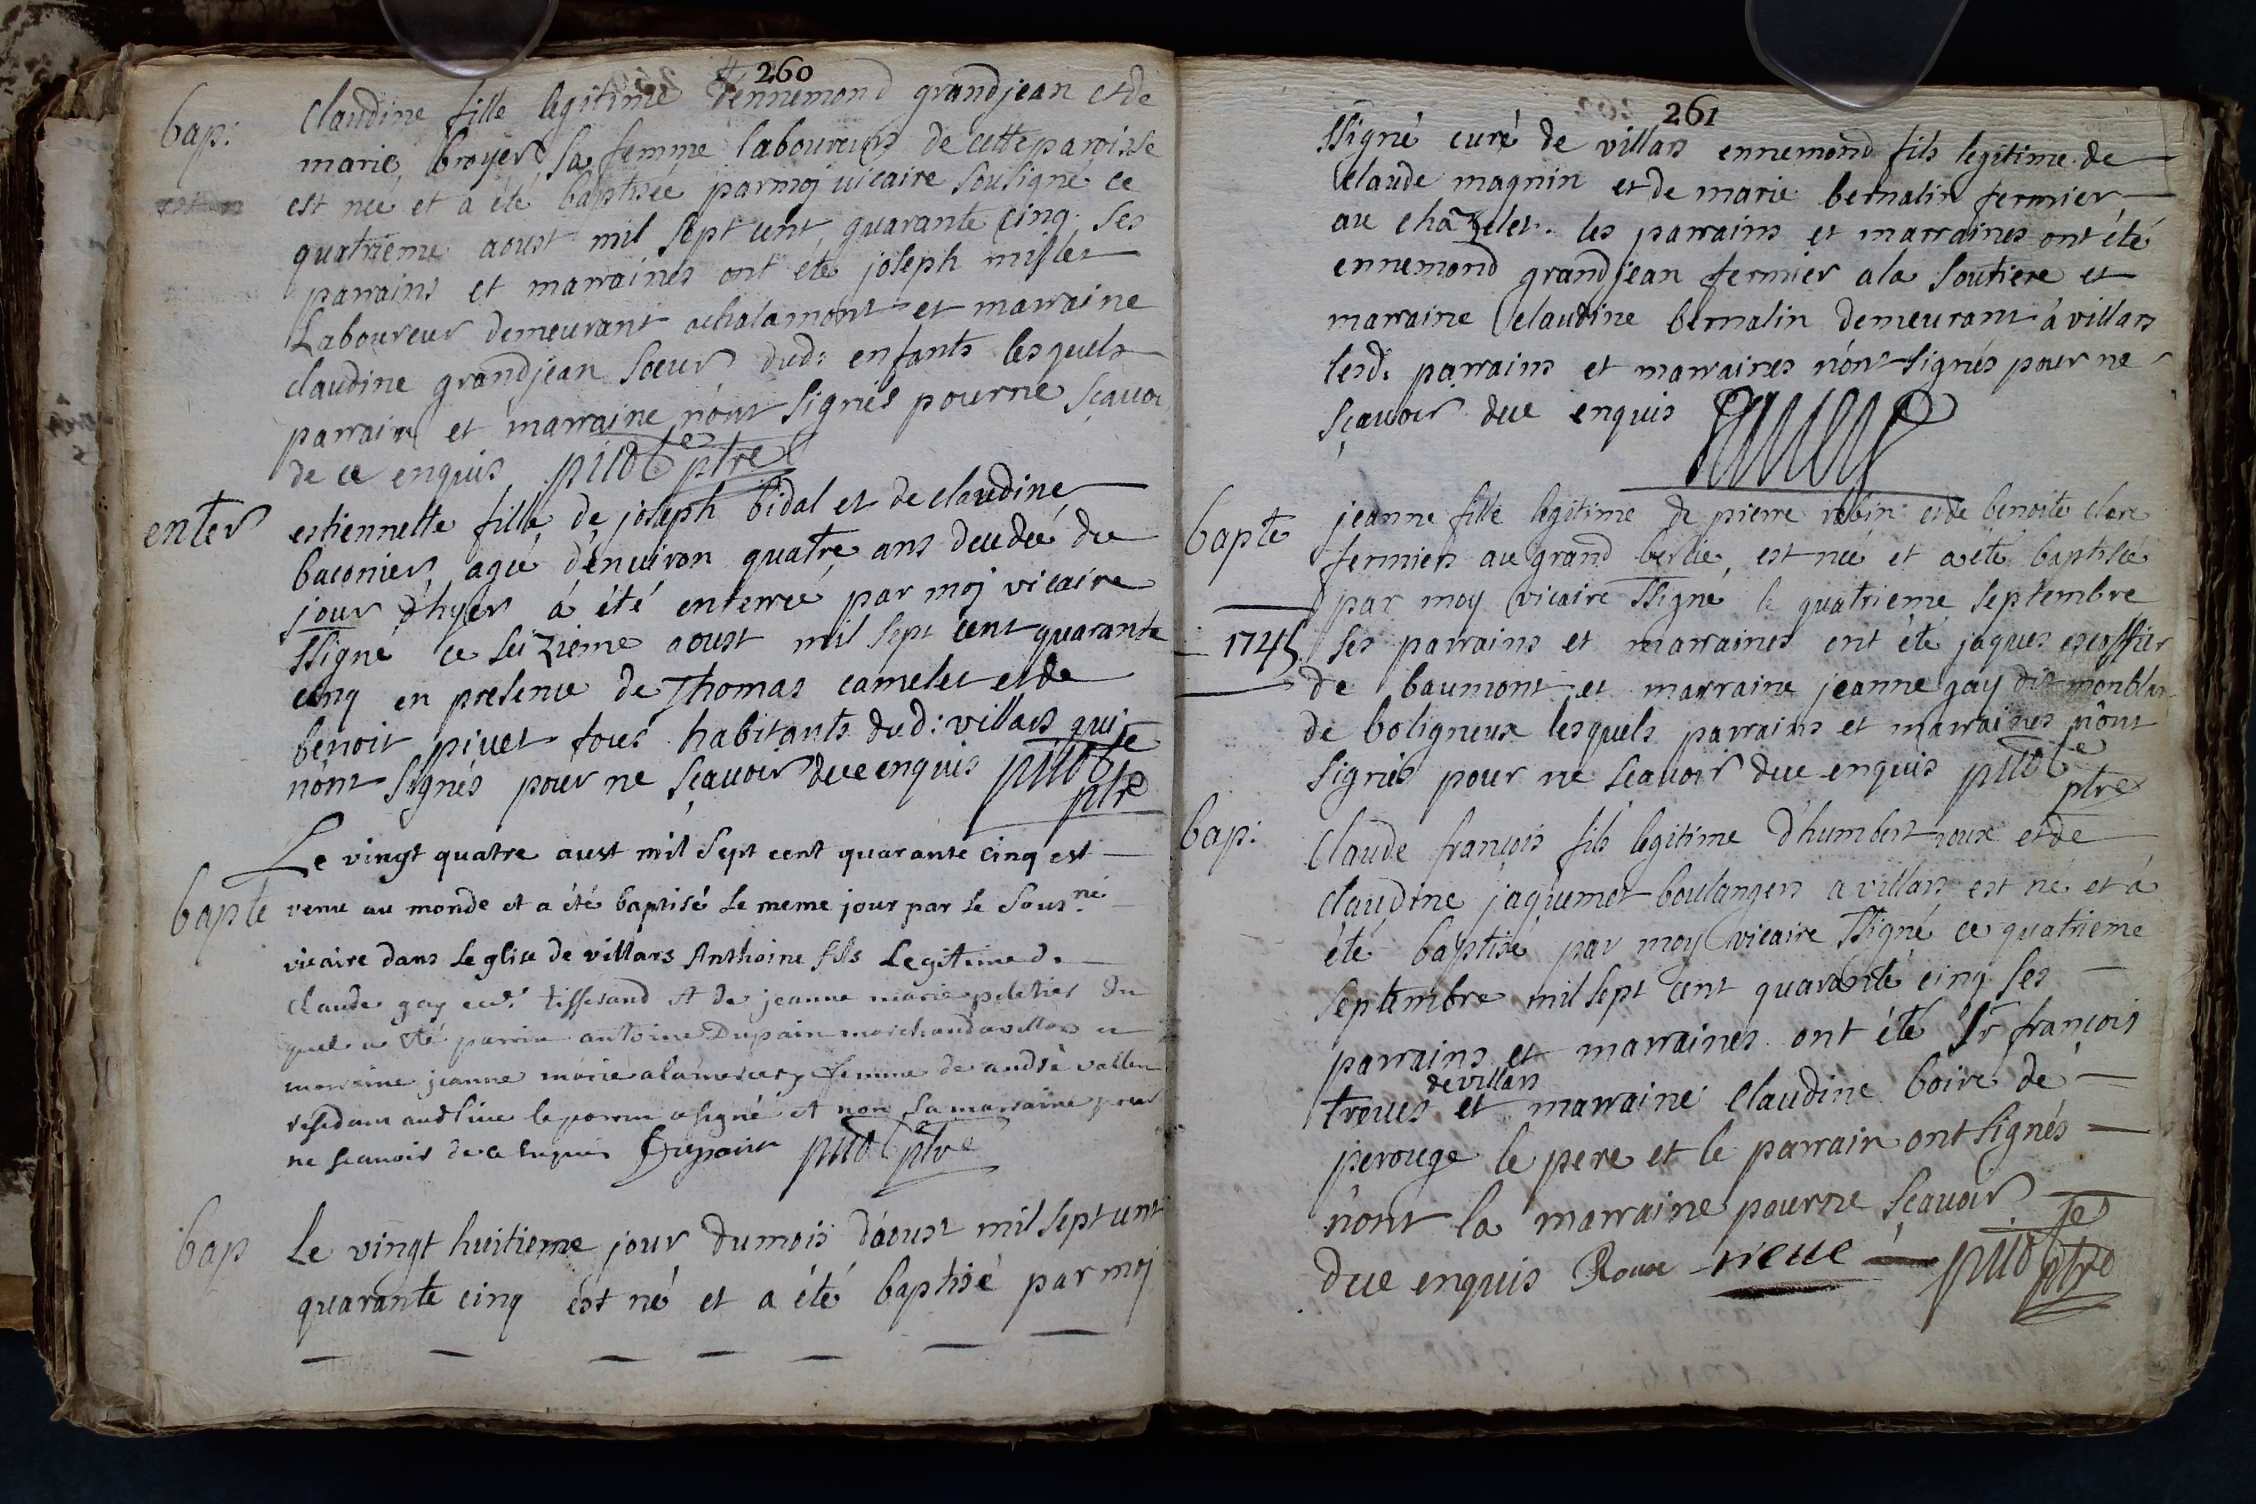 260
bap: Claudine fille legitime d'ennemond grandjean et de
marie broyer sa femme laboureurs de cette paroisse
est neé et a été baptisée par moj vicaire sousigné ce
quatrieme aoust mil sept cent quarante cinq. ses
parrains et marraines ont été joseph
Laboureur demeurant achalamont et marraine
claudine grandjean soeur dud: enfants lesquels
parrain et marraine n'ont signés pour ne sçavoir
de ce enquis ptre
enter estiennette fille de joseph bidal et de claudine
baconier ageé d'enuiron quatre ans decedeé du
jour d'hyer á été enterreé par moj vicaire
ssigné ce seizieme aoust mil sept cent quarante
cinq en presence de Thomas camelet et de
benoit piuet tous habitants dud: villars qui
n'ont signés pour ne sçauoir de ce enquis
ptre
Le vingt quatre aust mil sept cent quarante cinq est
bapte venu au monde et a été baptisé le meme jour par le sousné
vicaire dans leglise de villars Anthoine fils Legitime de
claude gay tisserand et de jeanne marie peletier du
quel a été parrin antoine Dupain marchand a villars et
marraine jeanne marie femme de andré
residant le parrin a signé et non la marraine pour
ne scauoir de ce enquis Dupain ptre
bap Le vingt huitieme jour du mois d'áoust mil sept cent
quarante cinq est né et a été baptisé par moj
261
ssigné curé de villars ennemond fils legitime de
Claude magnin et de marie bernalin fermier
au chazelet. les parrains et marraines ont été
ennemond grandjean fermier a la soutiere et
marraine Claudine bernalin demeurant à villars
lesd: parrains et marraines n'ont signés pour ne
sçauoir de ce enquis
bapte jeanne fille legitime de pierre robin et de benoite clere
fermiers au grand berlie, est neé et a été baptiseé
par moy vicaire ssigné le quatrieme septembre
1745 ses parrains et marraines ont été jaques escoffier
de baumont et marraine jeanne gay dit
de boligneux lesquels parrains et marraines n'ont
signés pour ne scauoir de ce enquis
ptre
bap: Claude françois fils legitime d'humbert roux et de
claudine jaquemet boulangers a villars est né et á
été baptisé par moy vicaire ssigné ce quatrieme
septembre mil sept cent quarante cinq ses
parrains et marraines ont été Sr françois
de villars
trouet et marraine Claudine boire de
perouge le pere et le parrain ont signés
n'ont la marraine pour ne sçauoir
de ce enquis Roux
ptre